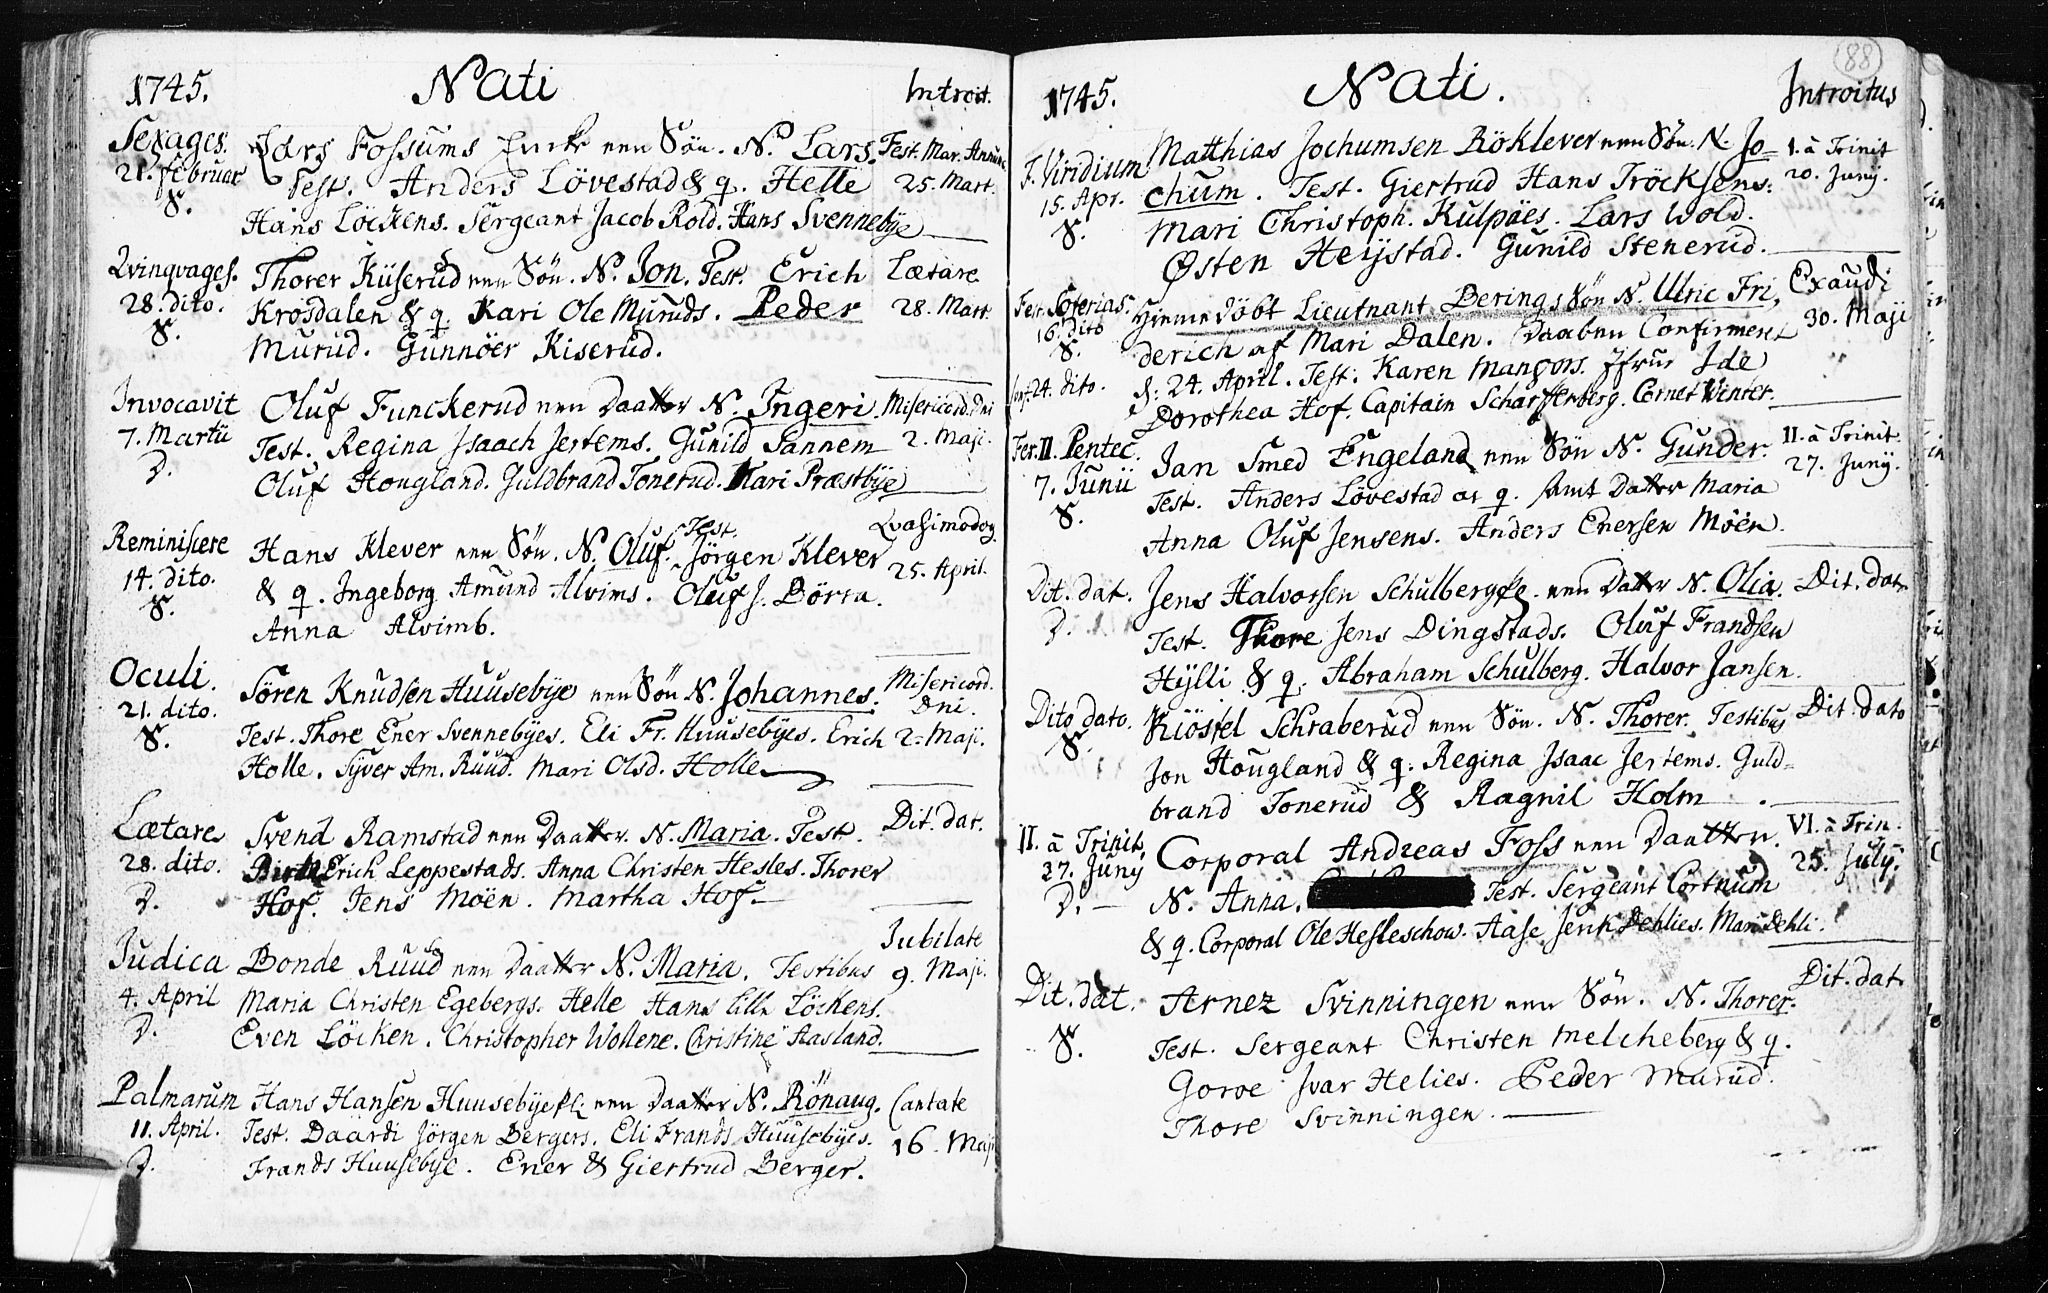 1745. Nati Introit.
Sexages. Lars Fossums Encke een Sön. N. Lars. Fest. Mar. Annunc
21. februar Test. Anders Lövestad & q. Helle 25. Mart.
S. Hans Löckens. Sergeant Jacob Rold. Hans Svennebye
Qvinqvages. Thorer Kiiserud een Sön. N. Jon. Test. Erich Lætare
28. dito. Krosdalen & q. Kari Ole Muruds. Peder 28. Mart.
S. Murud. Gunnöer Kiserud.
Invocavit Oluf Funckerud een Daatter N. Ingeri. Misericord. Dni
7. Martii Test. Regina Isaach Jertems. Gunild Sannem 2. Maji.
D. Oluf Hougland. Guldbrand Tonerud. Mari Præstbye
Reminiscere Hans Klever een Sön. N. Oluf. Test. Jörgen Klever Qvasimodog.
14. dito. & q. Ingeborg Amund Alvims. Oluf J. Börra. 25. April.
S. Anna Alvimb.
Oculi. Sören Knudsen Huusebye een Sön N. Johannes. Misericord. Dni.
21. dito. Test. Thore Ener Svennebyes. Eli Fr. Huusebyes. Erich 2. Maji.
S. Holle. Syver Am. Ruud. Mari Olsd. Holle
Lætare Svend Ramstad een Daatter. N. Maria. Test. Dit. dat.
28. dito. Birte Erich Leppestads. Anna Christen Hesles. Thorer
D. Hof. Jens Möen. Martha Hof.
Judica Bonde Ruud een Daatter N. Maria. Testibus Jubilate
4. April Maria Christen Egebergs. Helle Hans Lille Löckens. 9. Maji.
D. Even Löcken. Christopher Wollene. Christine Aasland.
Palmarum Hans Hansen Huusebye Pl: een Daatter N. Rönaug. Cantate
11. April. Test. Daardi Jörgen Bergers. Eli Frands Huusebyes. 16. Maji
D. Frands Huusebye. Ener & Giertrud Berger.
88
1745. Nati. Introitus
F. Viridium Matthias Jochumsen Röklever een Sön. N. Jo- 1. à Trinit
15. Apr. chum. Test. Giertrud Hans Tröcksens. 20. Junij.
S. Mari Christoph. Kulpäes. Lars Wold.
Østen Heystad. Gunild Stenerud.
Fer. Soterias. Hiemmedöbt Lieutnant Berings Sön N. Ulric Fri, Exaudi
16. Dito derich af Mari Dalen. Daaben Confirmeret 30. Maji
S. d: 24. April. Test. Karen Mangors. Jfrue Ide
Conf. 24. dito. Dorothea Hof. Capitain Scharffenberg. Cornet Winter.
Fer. II. Pentec. Jan Smed Engeland een Sön N. Gunder. II. à Trinit.
7. Junii Test. Anders Lövestad at q. samt Datter Maria 27. Junij.
S. Anna Oluf Jensens. Anders Enersen Möen.
Dit. dat. Jens Halvorsen Schulberg een Datter N. Olia. Dit. dat.
D. Test. Thore Jens Dingstads. Oluf Frandsen
Hylli & q. Abraham Schulberg. Halvor Jansen.
Dito dato. Kiöstel Schraberud een Sön. N. Thorer. Testibus Dit. dato
S. Jon Hougland & q. Regina Isaac Jertems. Guld-
brand Tonerud & Ragnil Holm
II. à Trinit. Corporal Andreas Foss een Daatter. VI. à Trin.
27. Junij N. Anna. Test. Sergeant Cortnum 25. July.
D. & q. Corporal Ole Hesleschow. Aase Jenk Dehlies. Mari Dehli.
Dit. dat. Arnez Svinningen een Sön. N. Thorer. Dit. dat.
S. Test. Sergeant Christen Melcheberg & q.
Goroe Ivar Helies. Peder Murud.
Thore Svinningen.